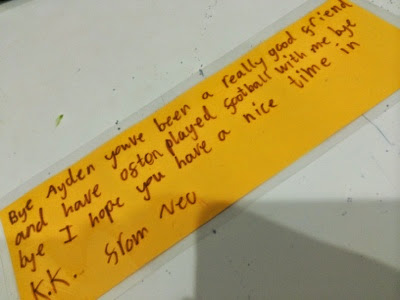 Bye Ayden youve been a really good friend
and have ofton played football with me bye
bye I hope you have a nice time in
K.K. from Neo